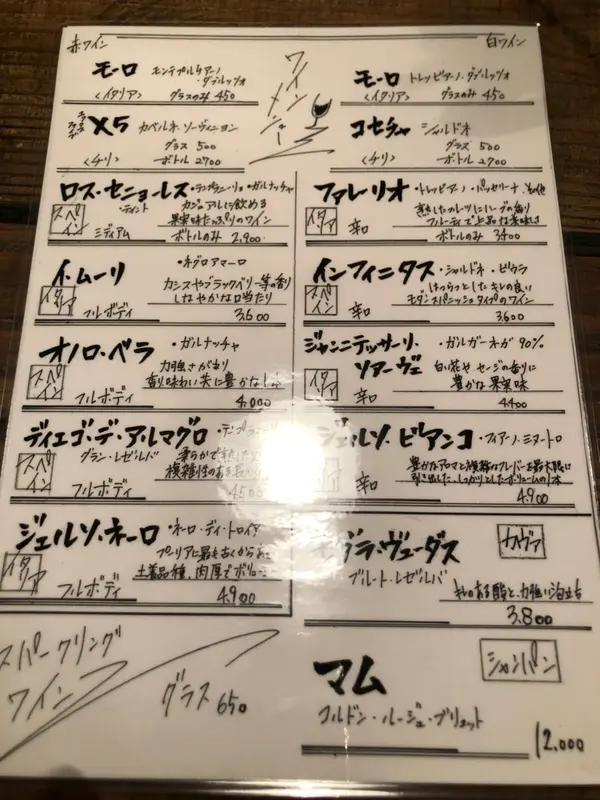 赤ワイン
ワインメニュー
白ワイン
モーロ モンテプルチアーノ・ダブルッツォ
〈イタリア〉 グラスのみ 450
X5 カベルネ・ソーヴィニヨン
グラス 500
〈チリ〉 ボトル 2700
ロス・セニョーレス ・テンプラニーリョ・ガルナッチャ
・ティント カジュアルに飲める
スペイン 果実味たっぷりのワイン
ミディアム ボトルのみ 2,900
イ・ムーリ ・ネグロアマーロ
イタリア カシスやブラックベリー等の香り
しなやかな口当たり
フルボディ 3,600
オノロ・ベラ ・ガルナッチャ
スペイン 力強さがあり
香り味わい共に豊かな1本
フルボディ 4,000
ディエゴ・デ・アルマグロ
グラン・レゼルバ
スペイン 複雑性のある
フルボディ 4,500
ジェルソ・ネーロ ・ネーロ・ディ・トロイア
イタリア プーリアに最も古くからある
土着品種、肉厚でボリューム
フルボディ 4,900
スパークリング
ワイン グラス 650
モーロ トレッビアーノ・ダブルッツォ
〈イタリア〉 グラスのみ 450
コセチャ シャルドネ
グラス 500
〈チリ〉 ボトル 2700
ファレーリオ ・トレッビアーノ・パッセリーナ・その他
イタリア 熟したフルーツにハーブの香り
フルーティで上品な美味しさ
辛口 ボトルのみ 3400
インフィニタス ・シャルドネ・ビウラ
スペイン はつらつとしたキレの良い
モダンスパニッシュタイプのワイン
辛口 3,600
ジャンニテッサーリ・ソアーヴェ ・ガルガーネガ 90%
イタリア 白い花やセージの香りに
豊かな果実味
辛口 4,400
ジェルソ・ビアンコ ・フィアーノ・ミヌートロ
豊かなアロマと複雑なフレーバーを最大限に
引き出した、しっかりとしたボリュームの1本
辛口 4,900
セグラ・ヴューダス カヴァ
ブルート・レゼルバ
キレのある酸と、力強い泡立ち
3,800
マム シャンパン
コルドン・ルージュ・ブリュット
12,000